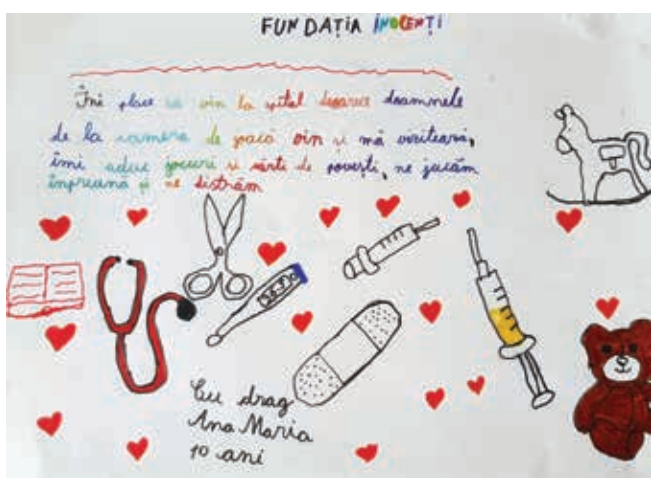 FUNDAȚIA INOCENȚI
Îmi place să vin la spital deoarece doamnele
de la camera de joacă vin și mă vizitează,
îmi aduc jocuri și cărți de povești, ne jucăm
împreună și ne distrăm
36.7
Cu drag
Ana Maria
10 ani